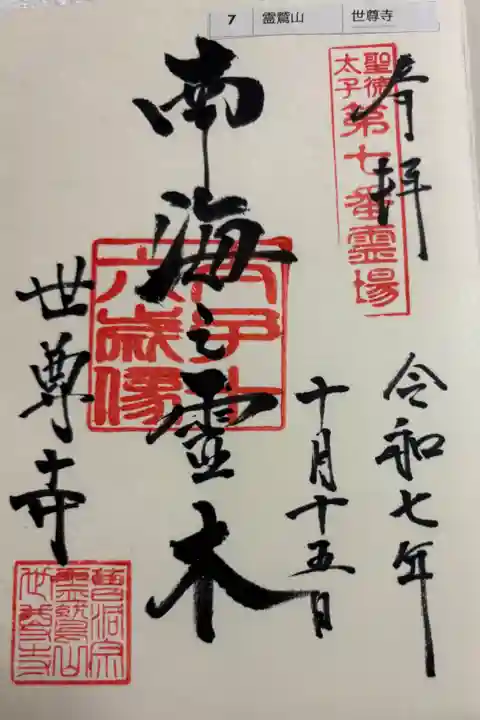 7 霊鷲山 世尊寺
奉拝
聖徳太子
第七番霊場
令和七年
十月十五日
南海之霊木
太子
六歳像
世尊寺
曹洞宗
霊鷲山
世尊寺